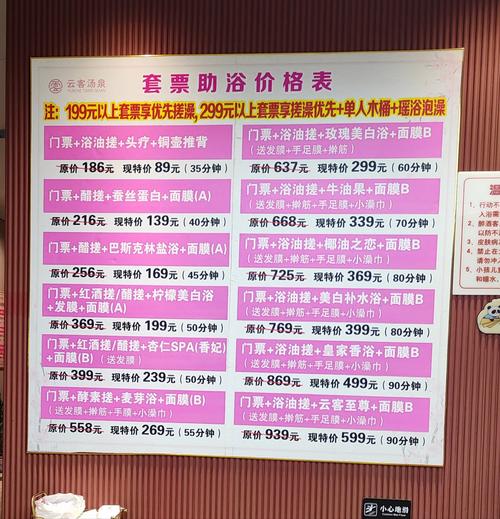 云客汤泉
套票助浴价格表
注：199元以上套票享优先搓澡,299元以上套票享搓澡优先+单人木桶+瑶浴泡澡
门票+浴油搓+头疗+铜壶推背
原价186元 现特价89元(35分钟)
门票+醋搓+蚕丝蛋白+面膜(A)
原价216元 现特价139元(40分钟)
门票+醋搓+巴斯克林盐浴+面膜(A)
原价256元 现特价169元(45分钟)
门票+红酒搓/醋搓+柠檬美白浴
+发膜+面膜(A)
原价369元 现特价199元(50分钟)
门票+红酒搓/醋搓+杏仁SPA(香妃)
+面膜(B)(送发膜)
原价399元 现特价239元(50分钟)
门票+酵素搓+麦芽浴+面膜(B)
(送发膜+擀筋+手膜+小澡巾)
原价558元 现特价269元(55分钟)
门票+浴油搓+玫瑰美白浴+面膜B
(送发膜+手足膜+擀筋)
原价637元 现特价299元(60分钟)
门票+浴油搓+牛油果+面膜B
(送发膜+擀筋+手足膜+小澡巾)
原价668元 现特价339元(70分钟)
门票+浴油搓+椰油之恋+面膜B
(送发膜+擀筋+手足膜+小澡巾)
原价725元 现特价369元(80分钟)
门票+浴油搓+美白补水浴+面膜B
(送发膜+擀筋+手足膜+小澡巾)
原价769元 现特价399元(80分钟)
门票+浴油搓+皇家香浴+面膜B
(送发膜+擀筋+手足膜+小澡巾)
原价869元 现特价499元(90分钟)
门票+浴油搓+云客至尊+面膜B
(送发膜+擀筋+手足膜+小澡巾)
原价939元 现特价599元(90分钟)
温
1、行动不
入浴需
2、醉酒客
以防不
3、皮肤病
4、禁止在
请勿冲
5、小孩儿
和嬉水
小心地滑